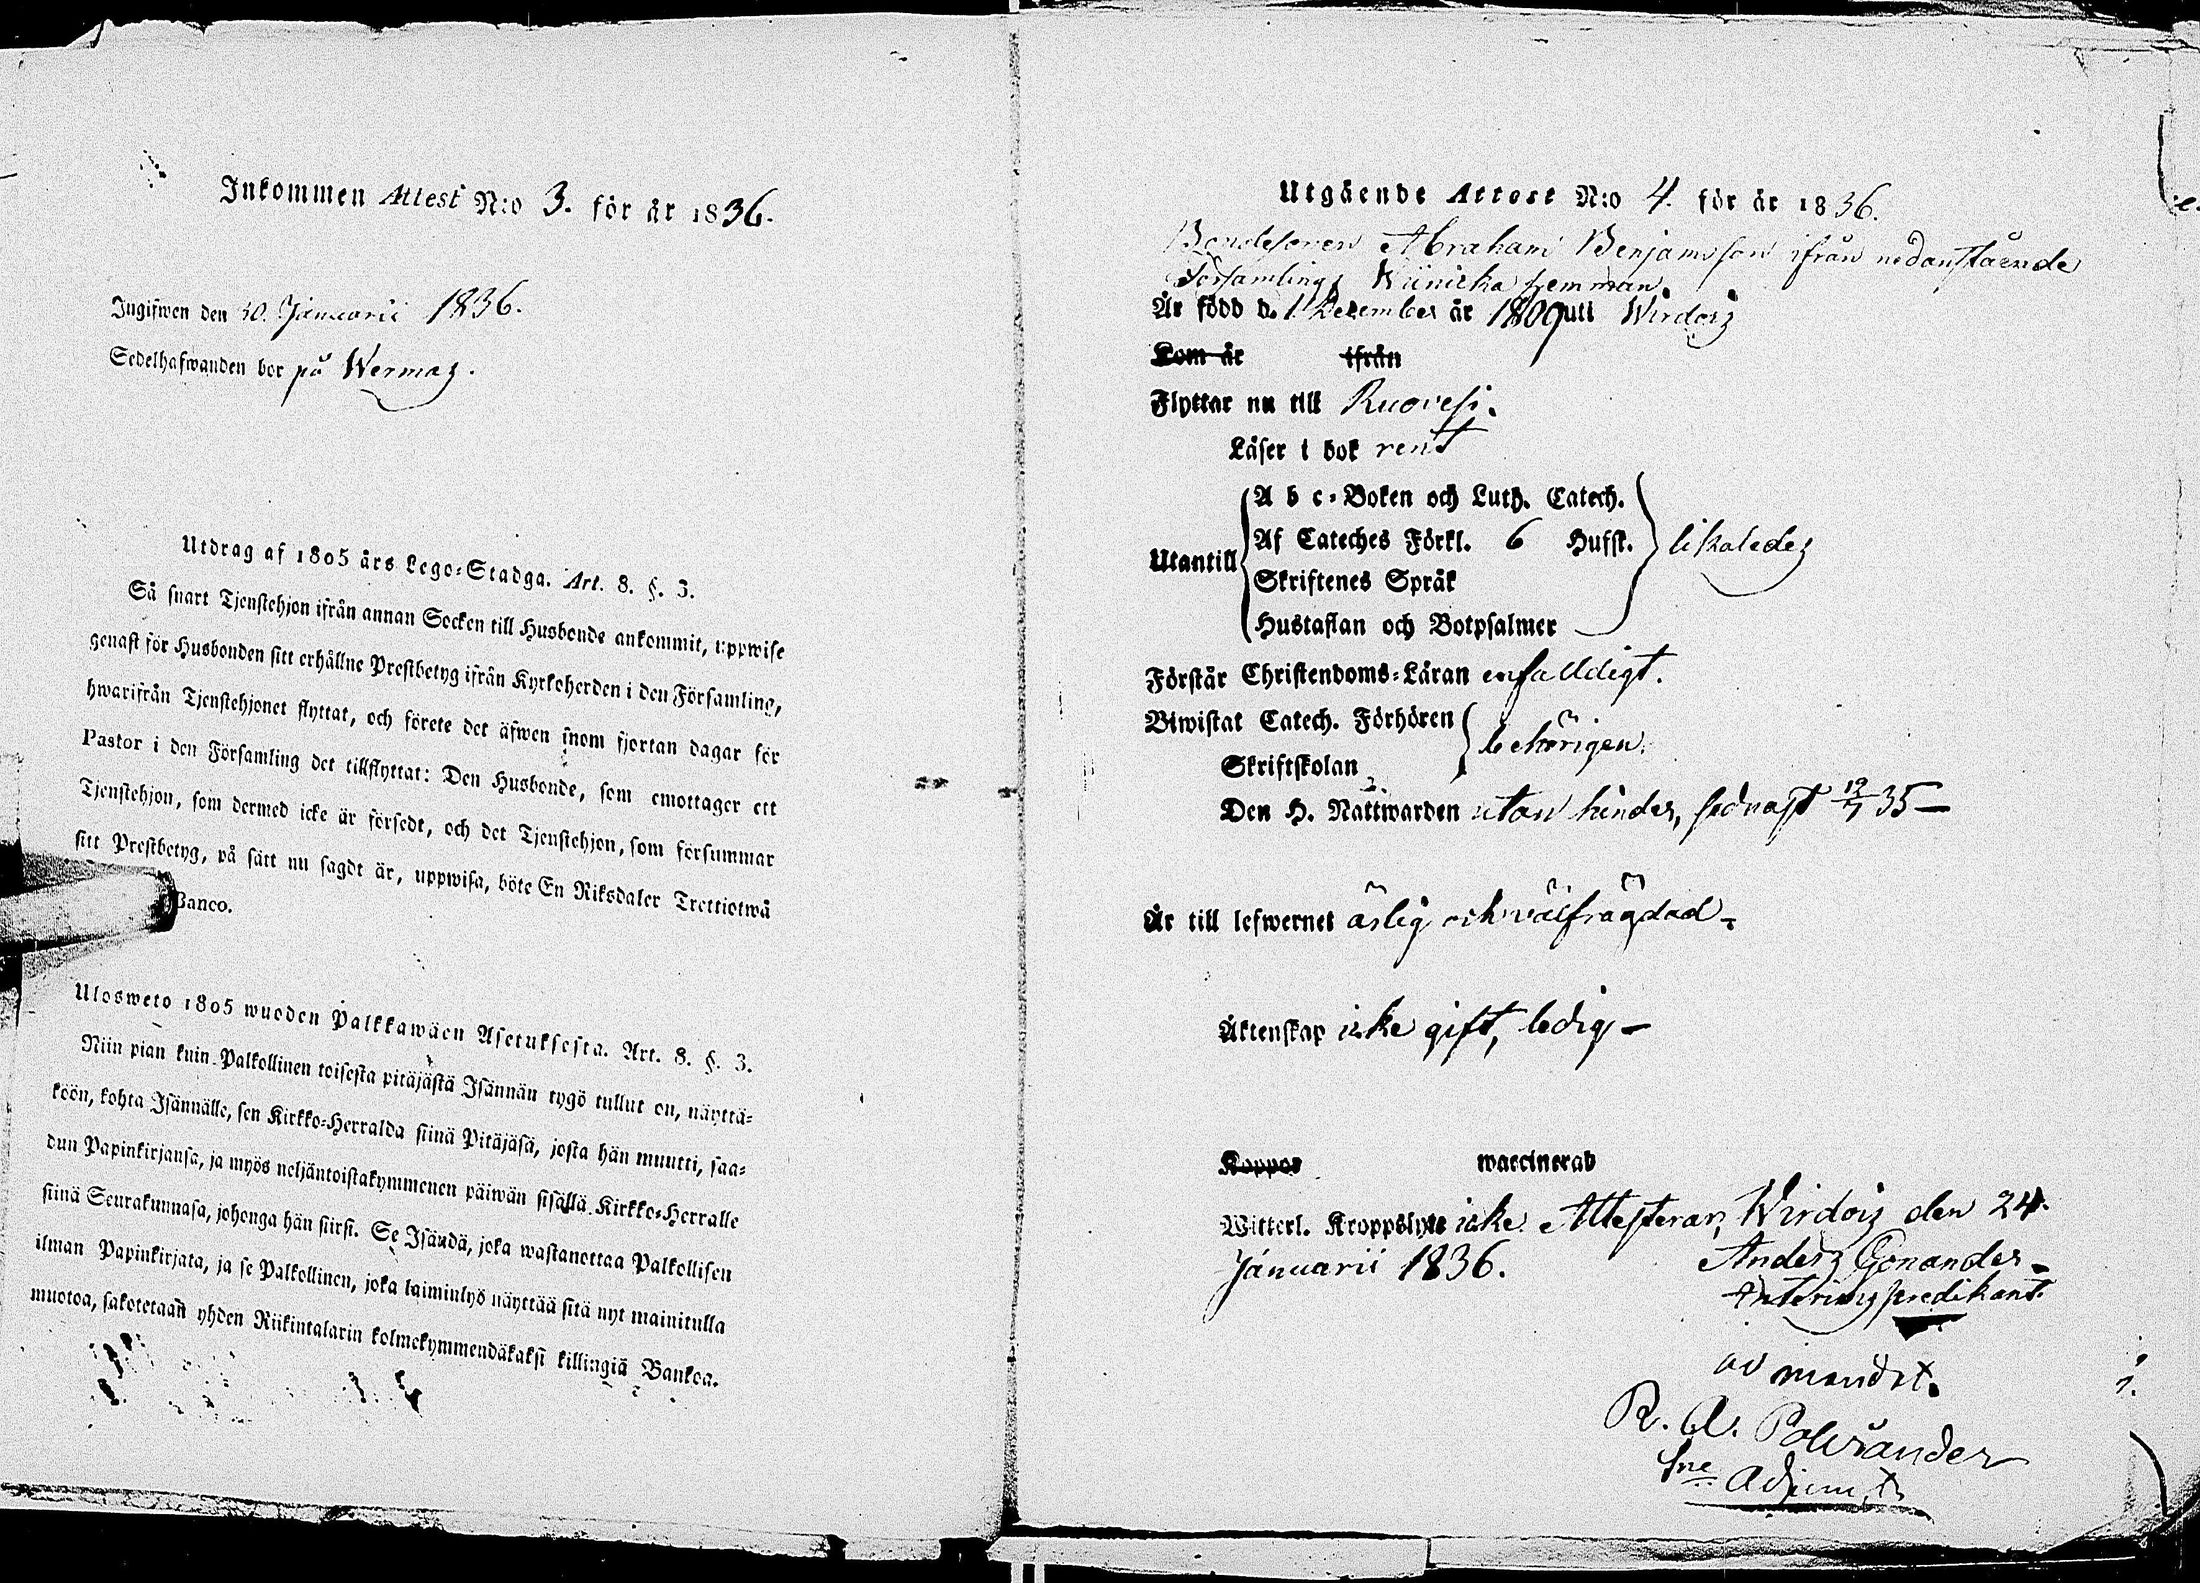 Inkommen Attest N:o 3. för år 1836.
Ingifwen den 30. Januarii 1836.
Sedelhafwanden bor på Wermas.
Utdrag af 1805 års Lego-Stadga. Art. 8. §. 3.
Så snart Tjenstehjon ifrån annan Socken till Husbonde ankommit, uppwise
genast för Husbonden sitt erhållne Prestbetyg ifrån Kyrkoherden i den Församling,
hwarifrån Tjenstehjonet flyttat, och förete det äfwen inom fjortan dagar för
Pastor i den Församling det tillflyttat: Den Husbonde, som emottager ett
Tjenstehjon, som dermed icke är försedt, och det Tjenstehjon, som försummar
sitt Prestbetyg, på sätt nu sagdt är, uppwisa, böte En Riksdaler Trettiotwå
Banco.
Ulosweto 1805 wuoden Palkkawäen Asetuksesta. Art. 8. §. 3.
Niin pian kuin Palkollinen toisesta pitäjästä Isännän tygö tullut on, näyttä-
köön, kohta Isännälle, sen Kirkko-Herralda siinä Pitäjäsä, josta hän muutti, saa-
dun Papinkirjansa, ja myös neljäntoistakymmenen päiwän sisällä Kirkko-Herralle
siinä Seurakunnasa, johonga hän siirsi. Se Isändä, joka wastanottaa Palkollisen
ilman Papinkirjata, ja se Palkollinen, joka laiminlyö näyttää sitä nyt mainitulla
muotoa, sakotetaan yhden Riikintalarin kolmekymmendäkaksi killingiä Bankoa.
Utgående Attest N:o 4. för år 1836.
Bondesonen Abraham Benjamsson ifrån nedanstående
Församlings Wiinicka hemman.
Är född d. 1 December år 1809 uti Wirdois
Kom år ifrån
Flyttar nu till Ruovesi.
Läser i bok rent
Utantill
A b c-Boken och Luth. Catech.
Af Cateches Förkl. 6 Hufst. likaledes
Skriftenes Språk
Hustaflan och Botpsalmer
Förstår Christendoms-Läran enfalldigt.
Biwistat Catech. Förhören behörigen.
Skriftskolan
Den H. Nattwarden utan hinder, sednast 12/7 35
Är till lefwernet ärlig och välfrägdad
Äktenskap icke gift, ledig
Koppor waccinerad
Witterl. Kroppslyte icke. Attesterar, Wirdois den 24.
Januarii 1836. Anders Gonander
Interims predikant.
ad mandat.
R. A. Polviander
Adjunct